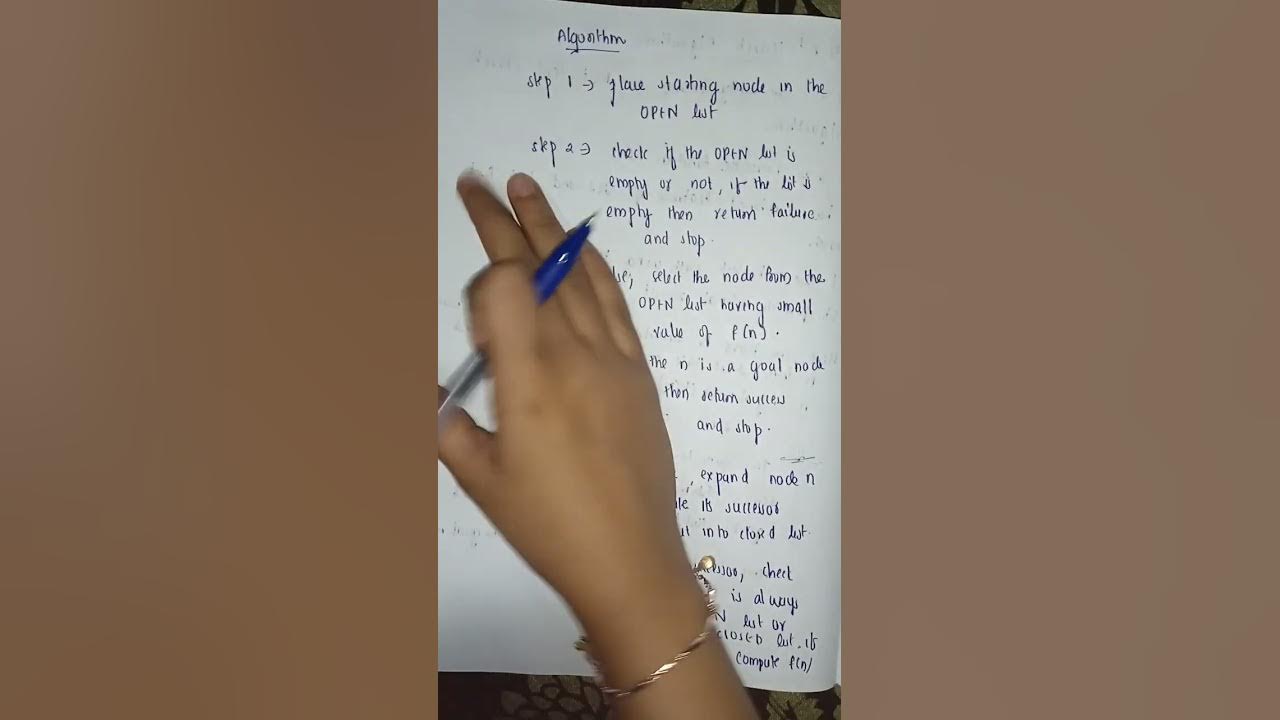 Algorithm
step 1 → place starting node in the
OPEN list
step 2 → check if the OPEN list is
empty or not, if the list is
empty then return failure
and stop.
select the node from the
OPEN list having small
value of f(n).
the n is a goal node
then return success
and stop.
, expand node n
its successor
into closed list.
check
is always
list or
CLOSED list. if
compute f(n)